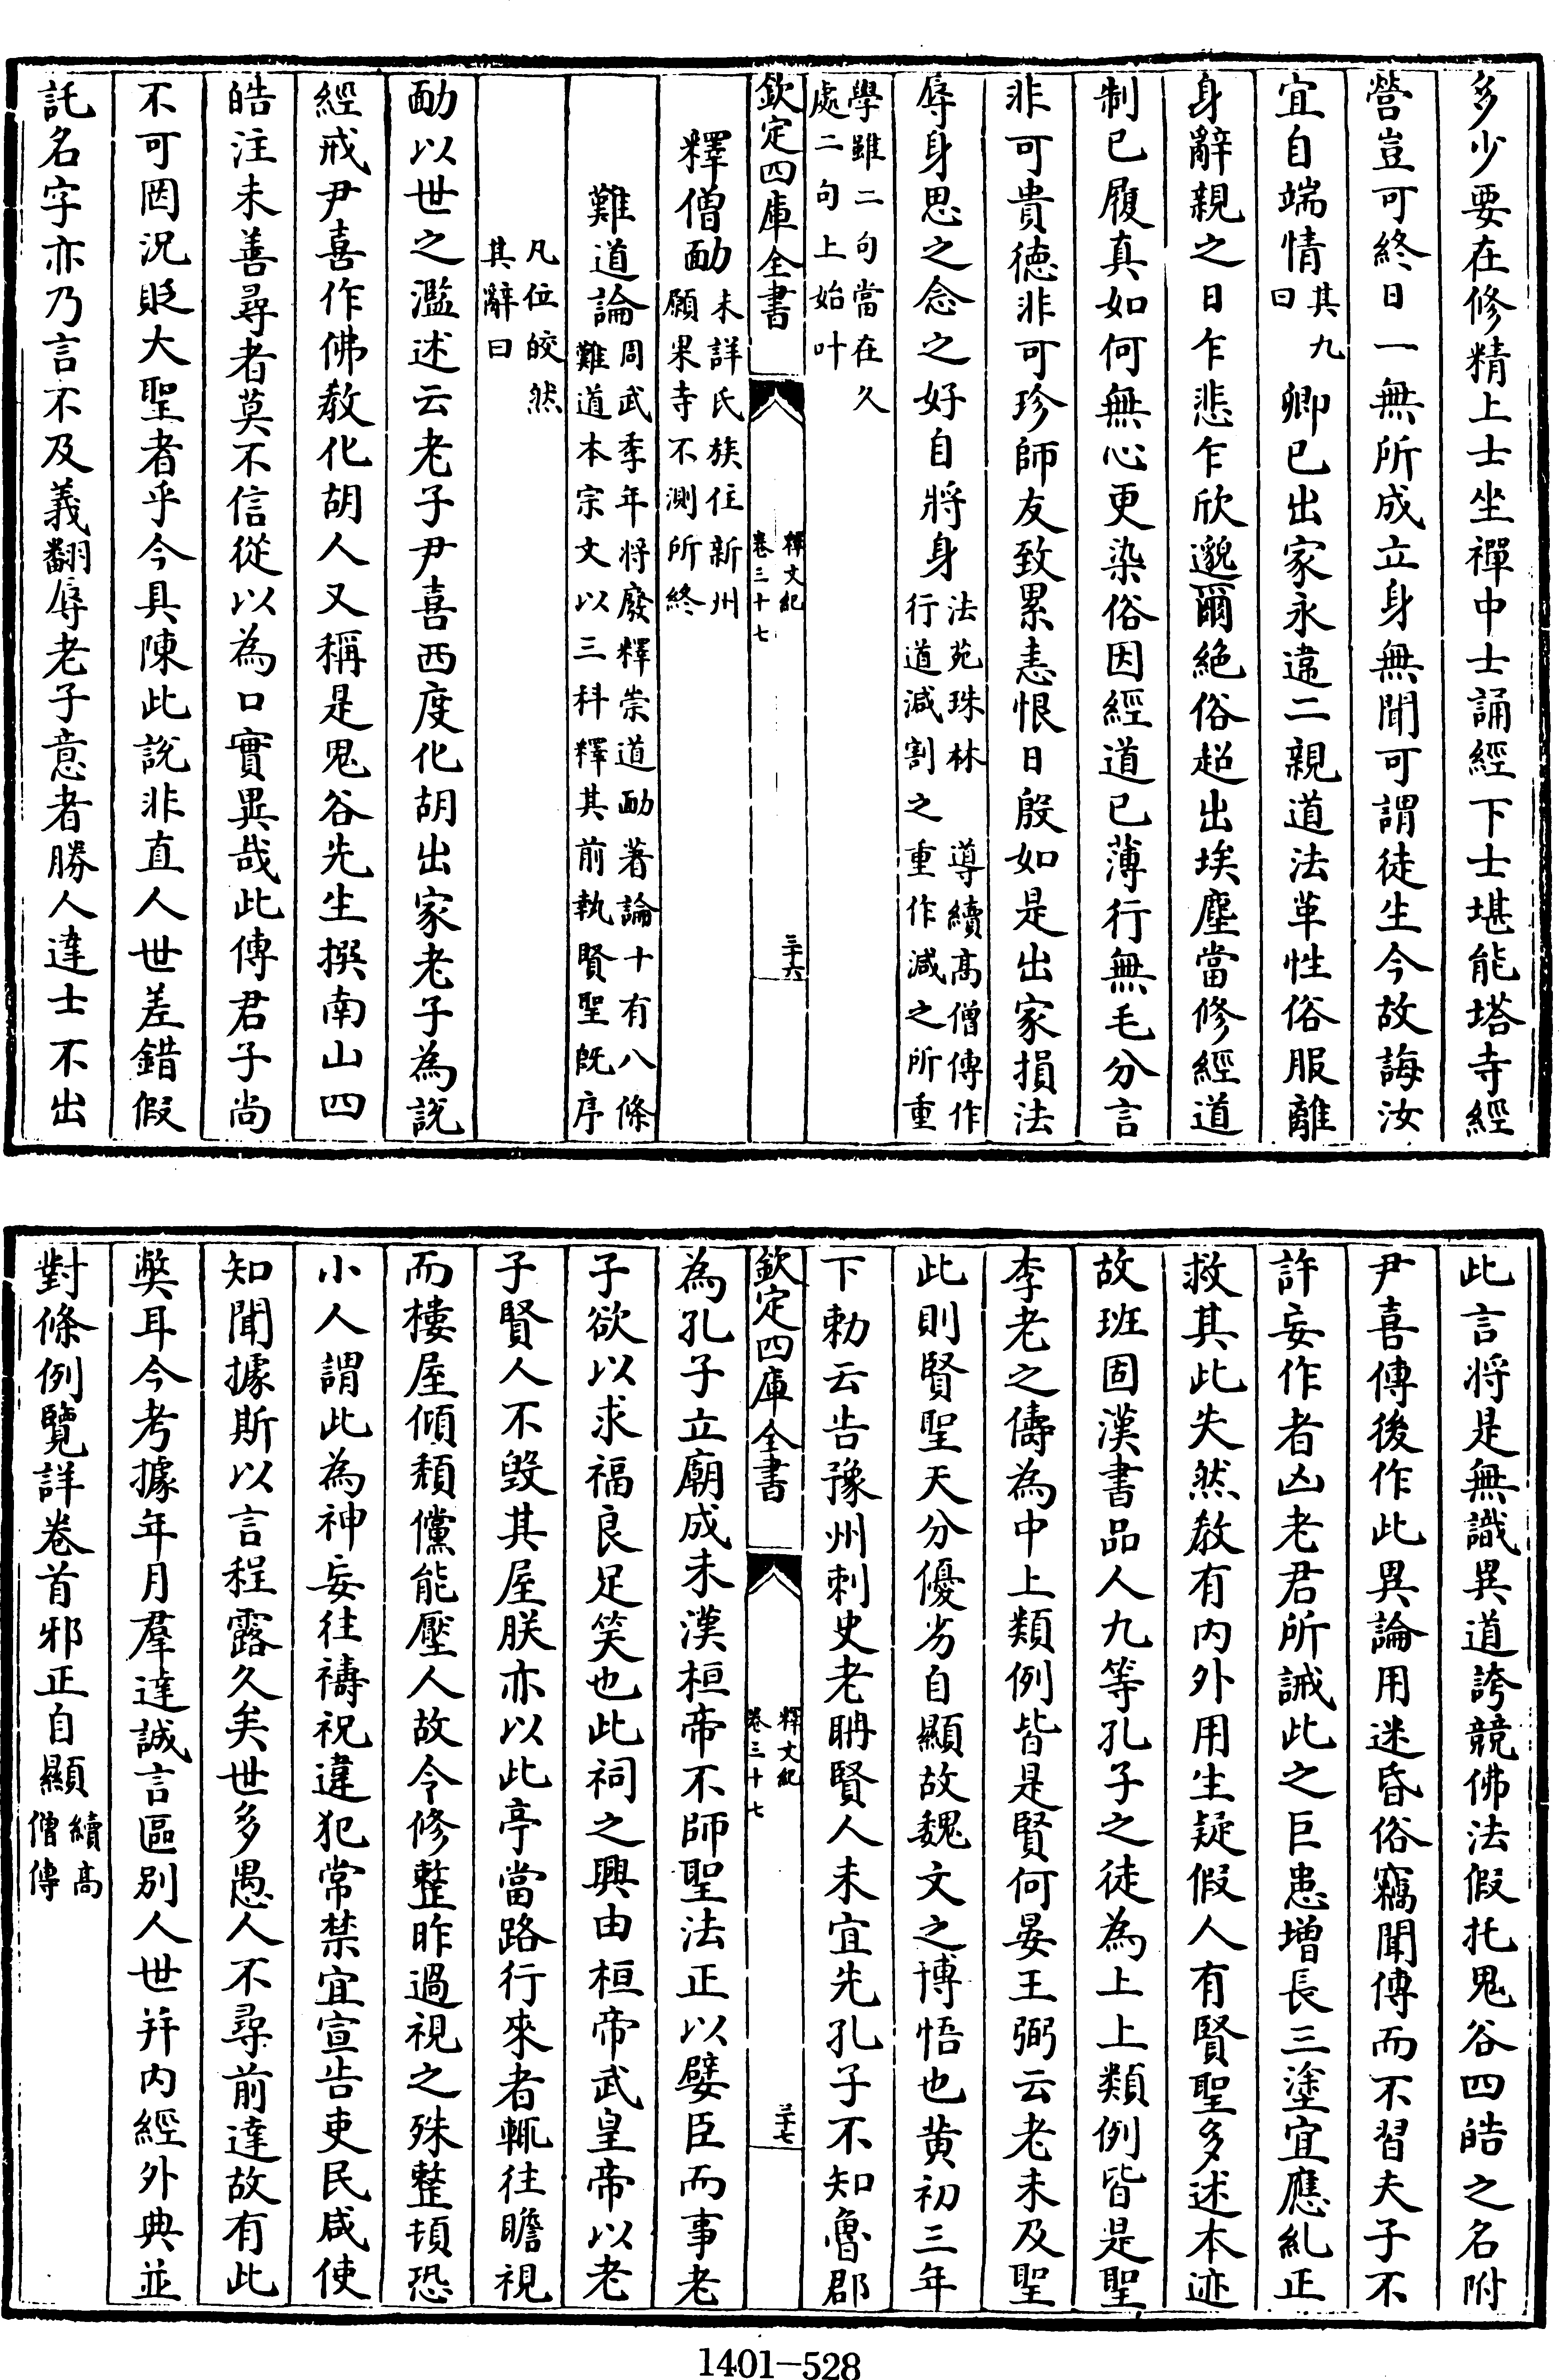 多少要在修精上士坐禪中士誦經下士堪能塔寺經
營豈可終日一無所成立身無聞可謂徒生今故誨汝
宜自端情其九曰卿已出家永違二親道法革性俗服離
身辭親之日乍悲乍欣邈爾絕俗超出埃塵當修經道
制已履真如何無心更染俗因經道已薄行無毛分言
非可貴徳非可珍師友致累恚恨日殷如是出家損法
辱身思之念之好自將身法苑珠林　導續高僧傳作
行道減割之重作減之所重
學雖二句當在久
處二句上始叶
欽定四庫全書
釋文紀
卷三十七
三十六
釋僧勔未詳氏族住新州
願果寺不測所終
難道論周武季年将廢釋崇道勔著論十有八條
難道本宗文以三科釋其前執賢聖旣序
凡位皎然
其辭曰
勔以世之濫述云老子尹喜西度化胡出家老子為說
經戒尹喜作佛教化胡人又稱是鬼谷先生撰南山四
皓注未善尋者莫不信從以為口實異哉此傳君子尚
不可罔況貶大聖者乎今具陳此說非直人世差錯假
託名字亦乃言不及義翻辱老子意者勝人達士不出
此言将是無識異道誇競佛法假托鬼谷四皓之名附
尹喜傳後作此異論用迷昏俗竊聞傳而不習夫子不
許妄作者凶老君所誡此之巨患增長三塗宜應糺正
救其此失然教有内外用生疑假人有賢聖多述本迹
故班固漢書品人九等孔子之徒為上上類例皆是聖
李老之儔為中上類例皆是賢何晏王弼云老未及聖
此則賢聖天分優劣自顯故魏文之博悟也黄初三年
下勅云告豫州刺史老聃賢人未宜先孔子不知魯郡
欽定四庫全書
釋文紀
卷三十七
三十七
為孔子立廟成未漢桓帝不師聖法正以嬖臣而事老
子欲以求福良足笑也此祠之興由桓帝武皇帝以老
子賢人不毀其屋朕亦以此亭當路行來者輒往瞻視
而樓屋傾頹儻能壓人故令修整昨過視之殊整頓恐
小人謂此為神妄往禱祝違犯常禁宜宣告吏民咸使
知聞據斯以言程露久矣世多愚人不尋前達故有此
弊耳今考據年月羣達誠言區別人世幷内經外典並
對條例覽詳卷首邪正自顯續高
僧傳
1401-528